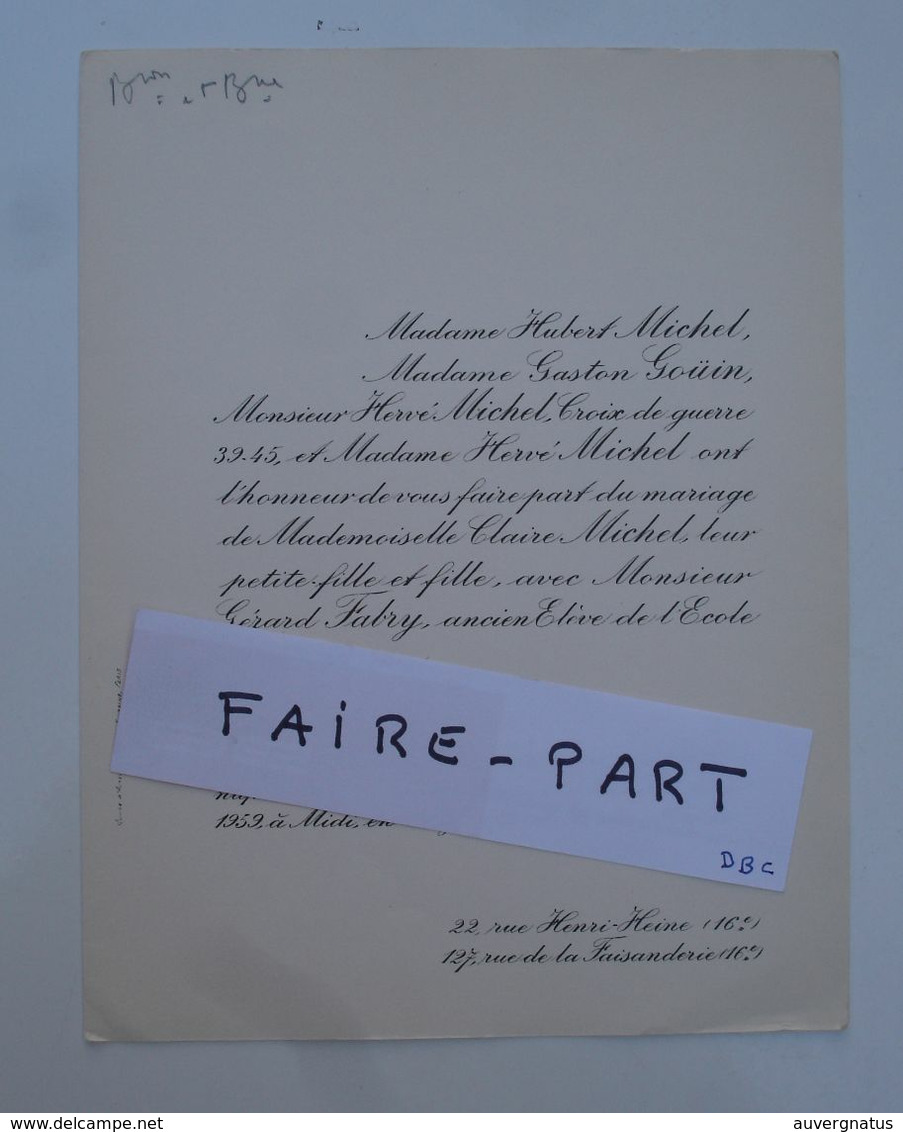 Bon et Bne
Madame Hubert Michel,
Madame Gaston Goüin,
Monsieur Hervé Michel, Croix de guerre
39-45, et Madame Hervé Michel ont
l'honneur de vous faire part du mariage
de Mademoiselle Claire Michel, leur
petite-fille et fille, avec Monsieur
Gérard Fabry, ancien Elève de l'Ecole
FAIRE-PART
1959, à Midi, en
DBC
22, rue Henri-Heine (16e)
127, rue de la Faisanderie (16e)
delcampe.net
auvergnatus